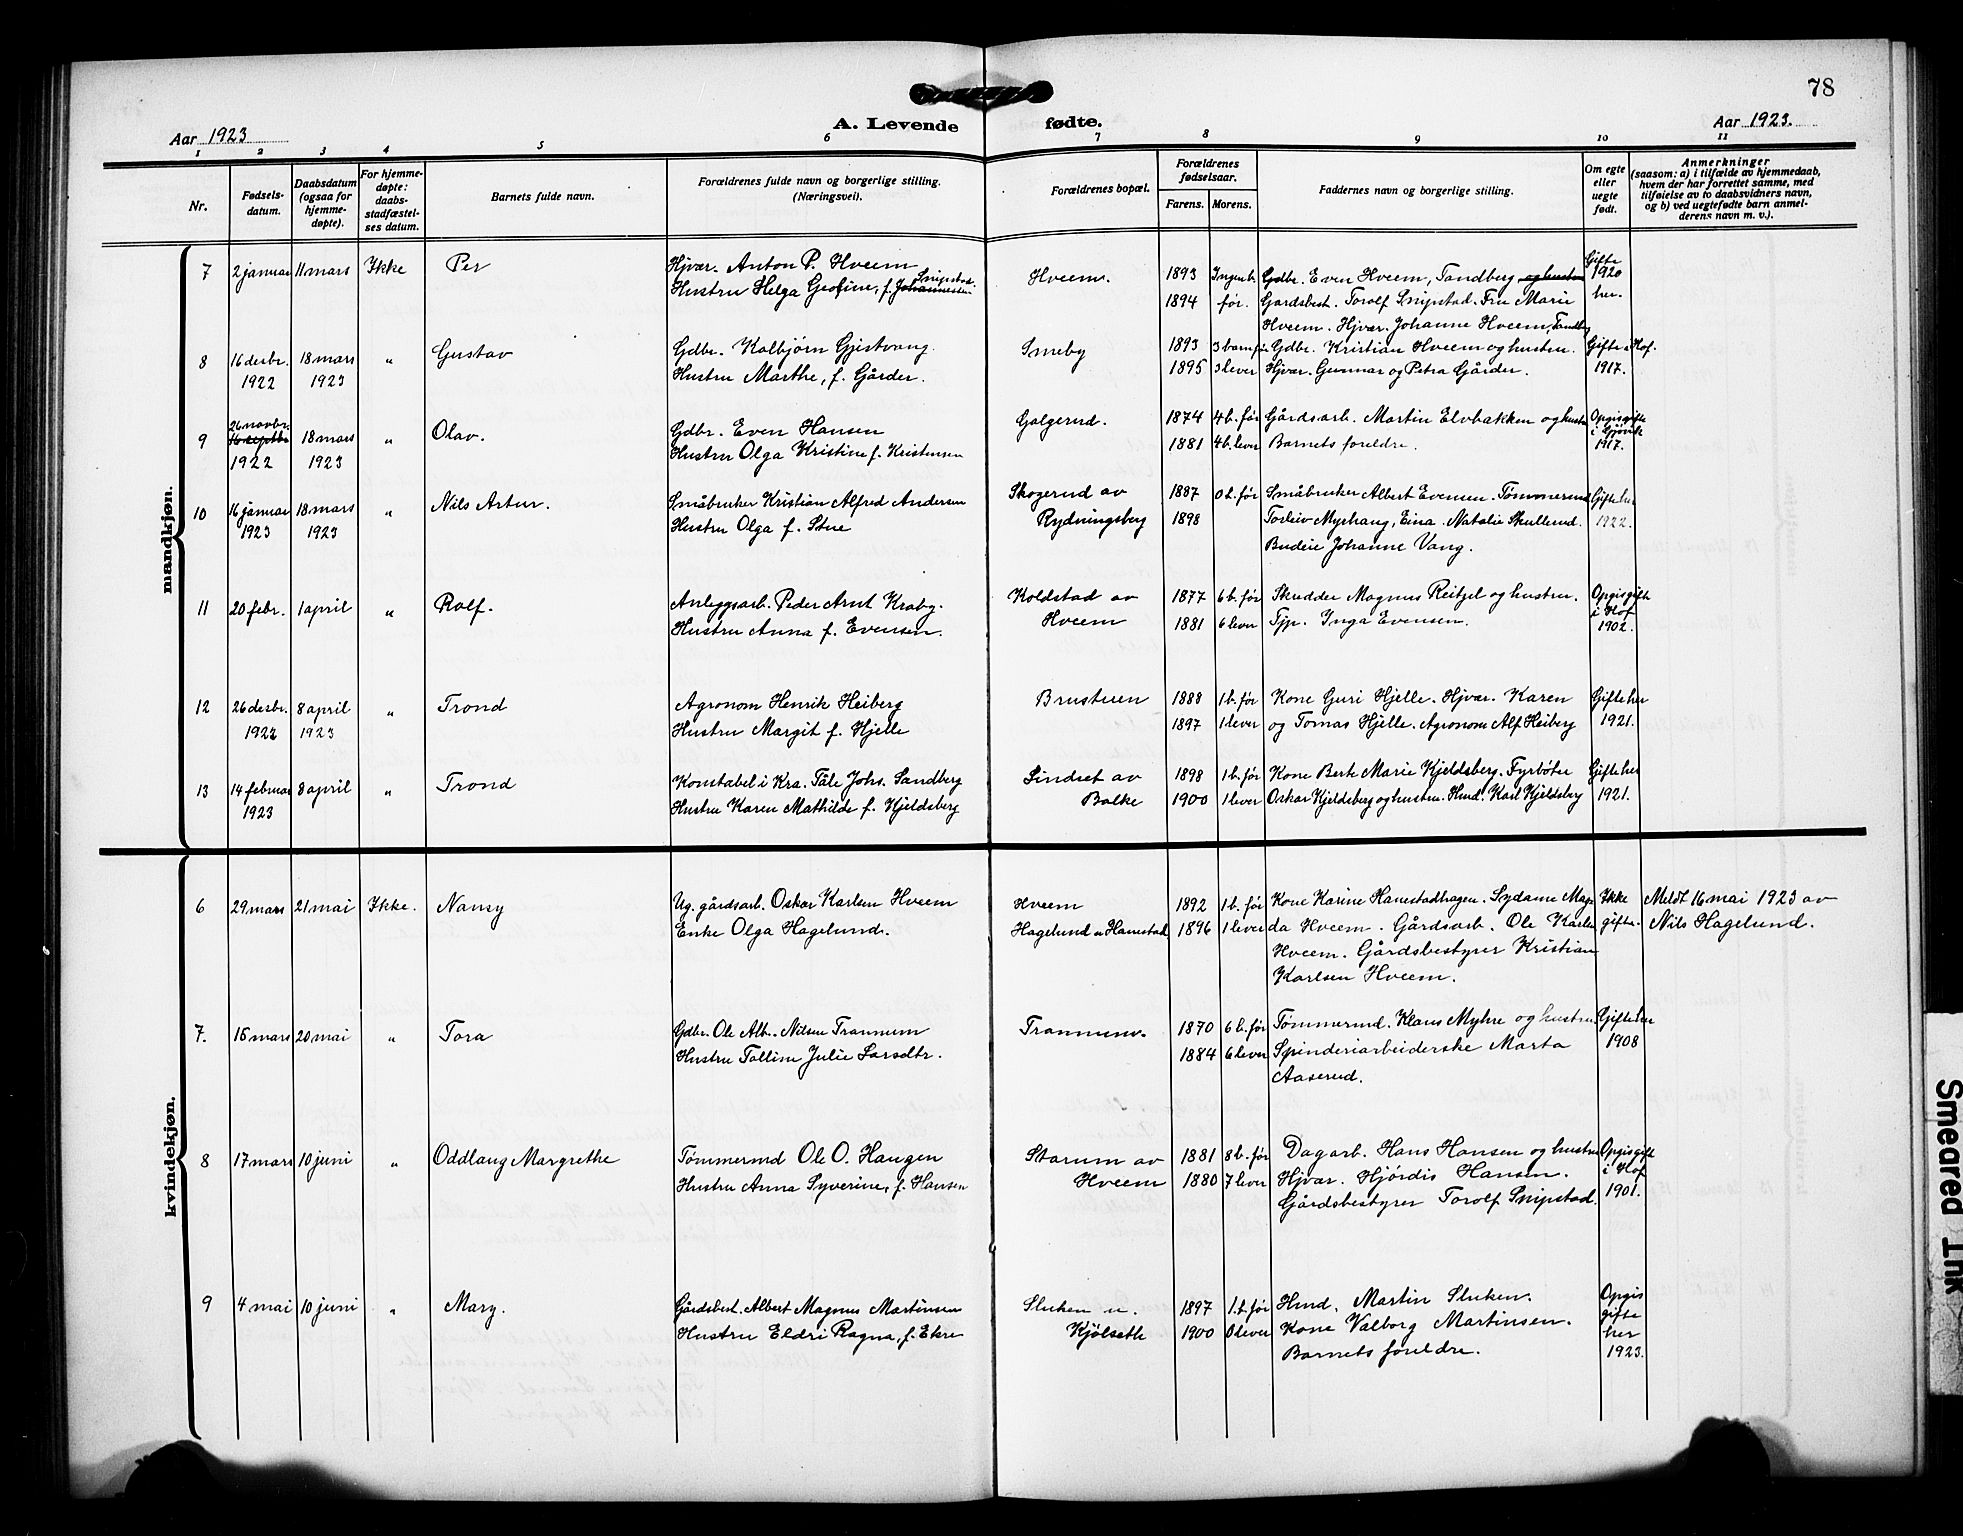 78
Aar 1923
A. Levende
fødte.
Aar 1923.
1 2 3 4 5 6 7 8 9 10 11
Nr.
Fødsels-
datum.
Daabsdatum
(ogsaa for
hjemme-
døpte).
For hjemme-
døpte:
daabs-
stadfæstel-
ses datum.
Barnets fulde navn.
Forældrenes fulde navn og borgerlige stilling.
(Næringsvei).
Forældrenes bopæl.
Forældrenes
fødselsaar.
Farens. Morens.
Faddernes navn og borgerlige stilling.
Om egte
eller
uegte
født.
Anmerkninger
(saasom: a) i tilfælde av hjemmedaab,
hvem der har forrettet samme, med
tilføielse av to daabsvidners navn,
og b) ved uegtefødte barn anmel-
derens navn m. v.).
mandkjøn.
7 2 januar 11 mars Ikke Per
Hjvær. Anton P. Hveem
Snipstad
Hustru Helga Geofine, f. Johannesen
Hveem.
1893 Ingen b.
1894 før.
Gdbr. Even Hveem, Tandberg og hustru
Gardsbest. Torolf Snipstad. Fru Marie
Hveem. Hjvær. Johanne Hveem, Tandbg
Gifte
1920
her.
8 16 desbr. 18 mars " Gustav
1922 1923
Gdbr. Kolbjørn Gjistvang.
Hustru Marthe, f. Gårder.
Smeby
1893 3 barn før
1895 3 lever
Gdbr. Kristian Hveem og hustru.
Hjvær. Gunnar og Petra Gårder.
Gifte i Hof.
1917.
26 novbr.
9 16 septbr 18 mars " Olav.
1922 1923
Gdbr. Even Hansen
Hustru Olga Kristine f. Kristensen
Galgerud.
1874 4 b. før
1881 4 b. lever
Gårdsarb. Martin Elvbakken og hustru
Barnets foreldre.
Opgis gifte
i Gjøvik
1917.
10 16 januar 18 mars " Nils Artur.
1923 1923
Småbruker Kristian Alfred Andersen
Hustru Olga f. Stue
Skogerud av
Rydningsberg
1887 0 b. før
1898
Småbruker Albert Evensen. Tømmermd.
Torleiv Myrhaug, Eina. Natalie Skullerud.
Budeie Johanne Vang.
Gifte her
1922.
11 20 febr. 1 april " Rolf.
Anleggsarb. Peder Arnt Kraby.
Hustru Anna f. Evensen.
Koldstad av
Hveem
1877 6 b. før
1881 6 lever
Skredder Magnus Reitzel og hustru.
Tjp. Inga Evensen.
Opgis gifte
i Hof
1902.
12 26 desbr. 8 april " Trond
1922 1923
Agronom Henrik Heiberg
Hustru Margit f. Hjelle
Brustuen
1888 1 b. før
1897 1 lever
Kone Guri Hjelle. Hjvær. Karen
og Tomas Hjelle. Agronom Alf Heiberg
Gifte her
1921.
13 14 februar 8 april " Trond
1923
Konstabel i Kra. Tåle Johs. Sandberg
Hustru Karen Mathilde f. Kjeldsberg
Sindset av
Balke
1898 1 b. før
1900 1 lever
Kone Berte Marie Kjeldsberg. Fyrbøter
Oskar Kjeldsberg og hustru. Hmd. Karl Kjeldsberg
Gifte her
1921.
kvindekjøn.
6 29 mars 21 mai Ikke. Nancy
Ug. gårdsarb. Oskar Karlsen Hveem
Enke Olga Hagelund.
Hveem
Hagelund u Hanestad
1892 1 b. før
1896 1 lever
Kone Karine Hanestadhagen. Sydame Mag-
da Hveem. Gårdsarb. Ole Karlsen
Hveem. Gårdsbestyrer Kristian
Karlsen Hveem.
Ikke
gifte.
Meldt 16 mai 1923 av
Nils Hagelund.
7. 15 mars 20 mai " Tora
Gdbr. Ole Alb. Nilsen Trannum
Hustru Talline Julie Larsdtr.
Trannum.
1870 6 b. før
1884 6 lever
Tømmermd. Klaus Myhre og hustru
Spinderiarbeiderske Marta
Aaserud.
Gifte her
1908
8 17 mars 10 juni " Oddlaug Margrethe
Tømmermd Ole O. Haugen
Hustru Anna Syverine, f. Hansen
Starum av
Hveem
1881 8 b. før
1880 7 lever
Dagarb. Hans Hansen og hustru
Hjvær. Hjørdis Hansen.
Gårdsbestyrer Torolf Snipstad.
Opgis gift
i Hof
1901.
9 4 mai 10 juni " Mary.
Gårdsbest. Albert Magnus Martinsen
Hustru Eldri Ragna, f. Ekre
Sluken u.
Kjölseth
1897 1 b. før
1900 0 lever
Hmd. Martin Sluken.
Kone Valborg Martinsen.
Barnets foreldre.
Opgis
gifte
her
1923.
Smeared Ink